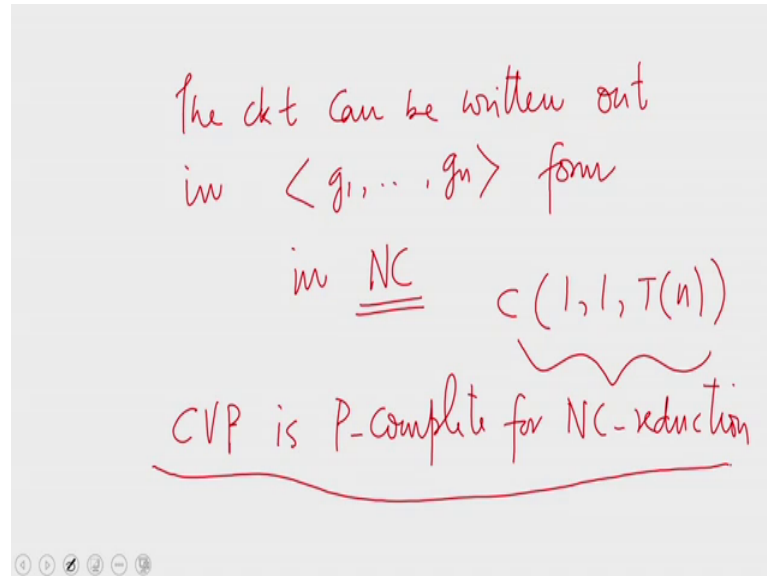 The ckt Can be written out
in < g1, .. , gn > form
in NC
C(1, 1, T(n))
CVP is P-Complete for NC-reduction